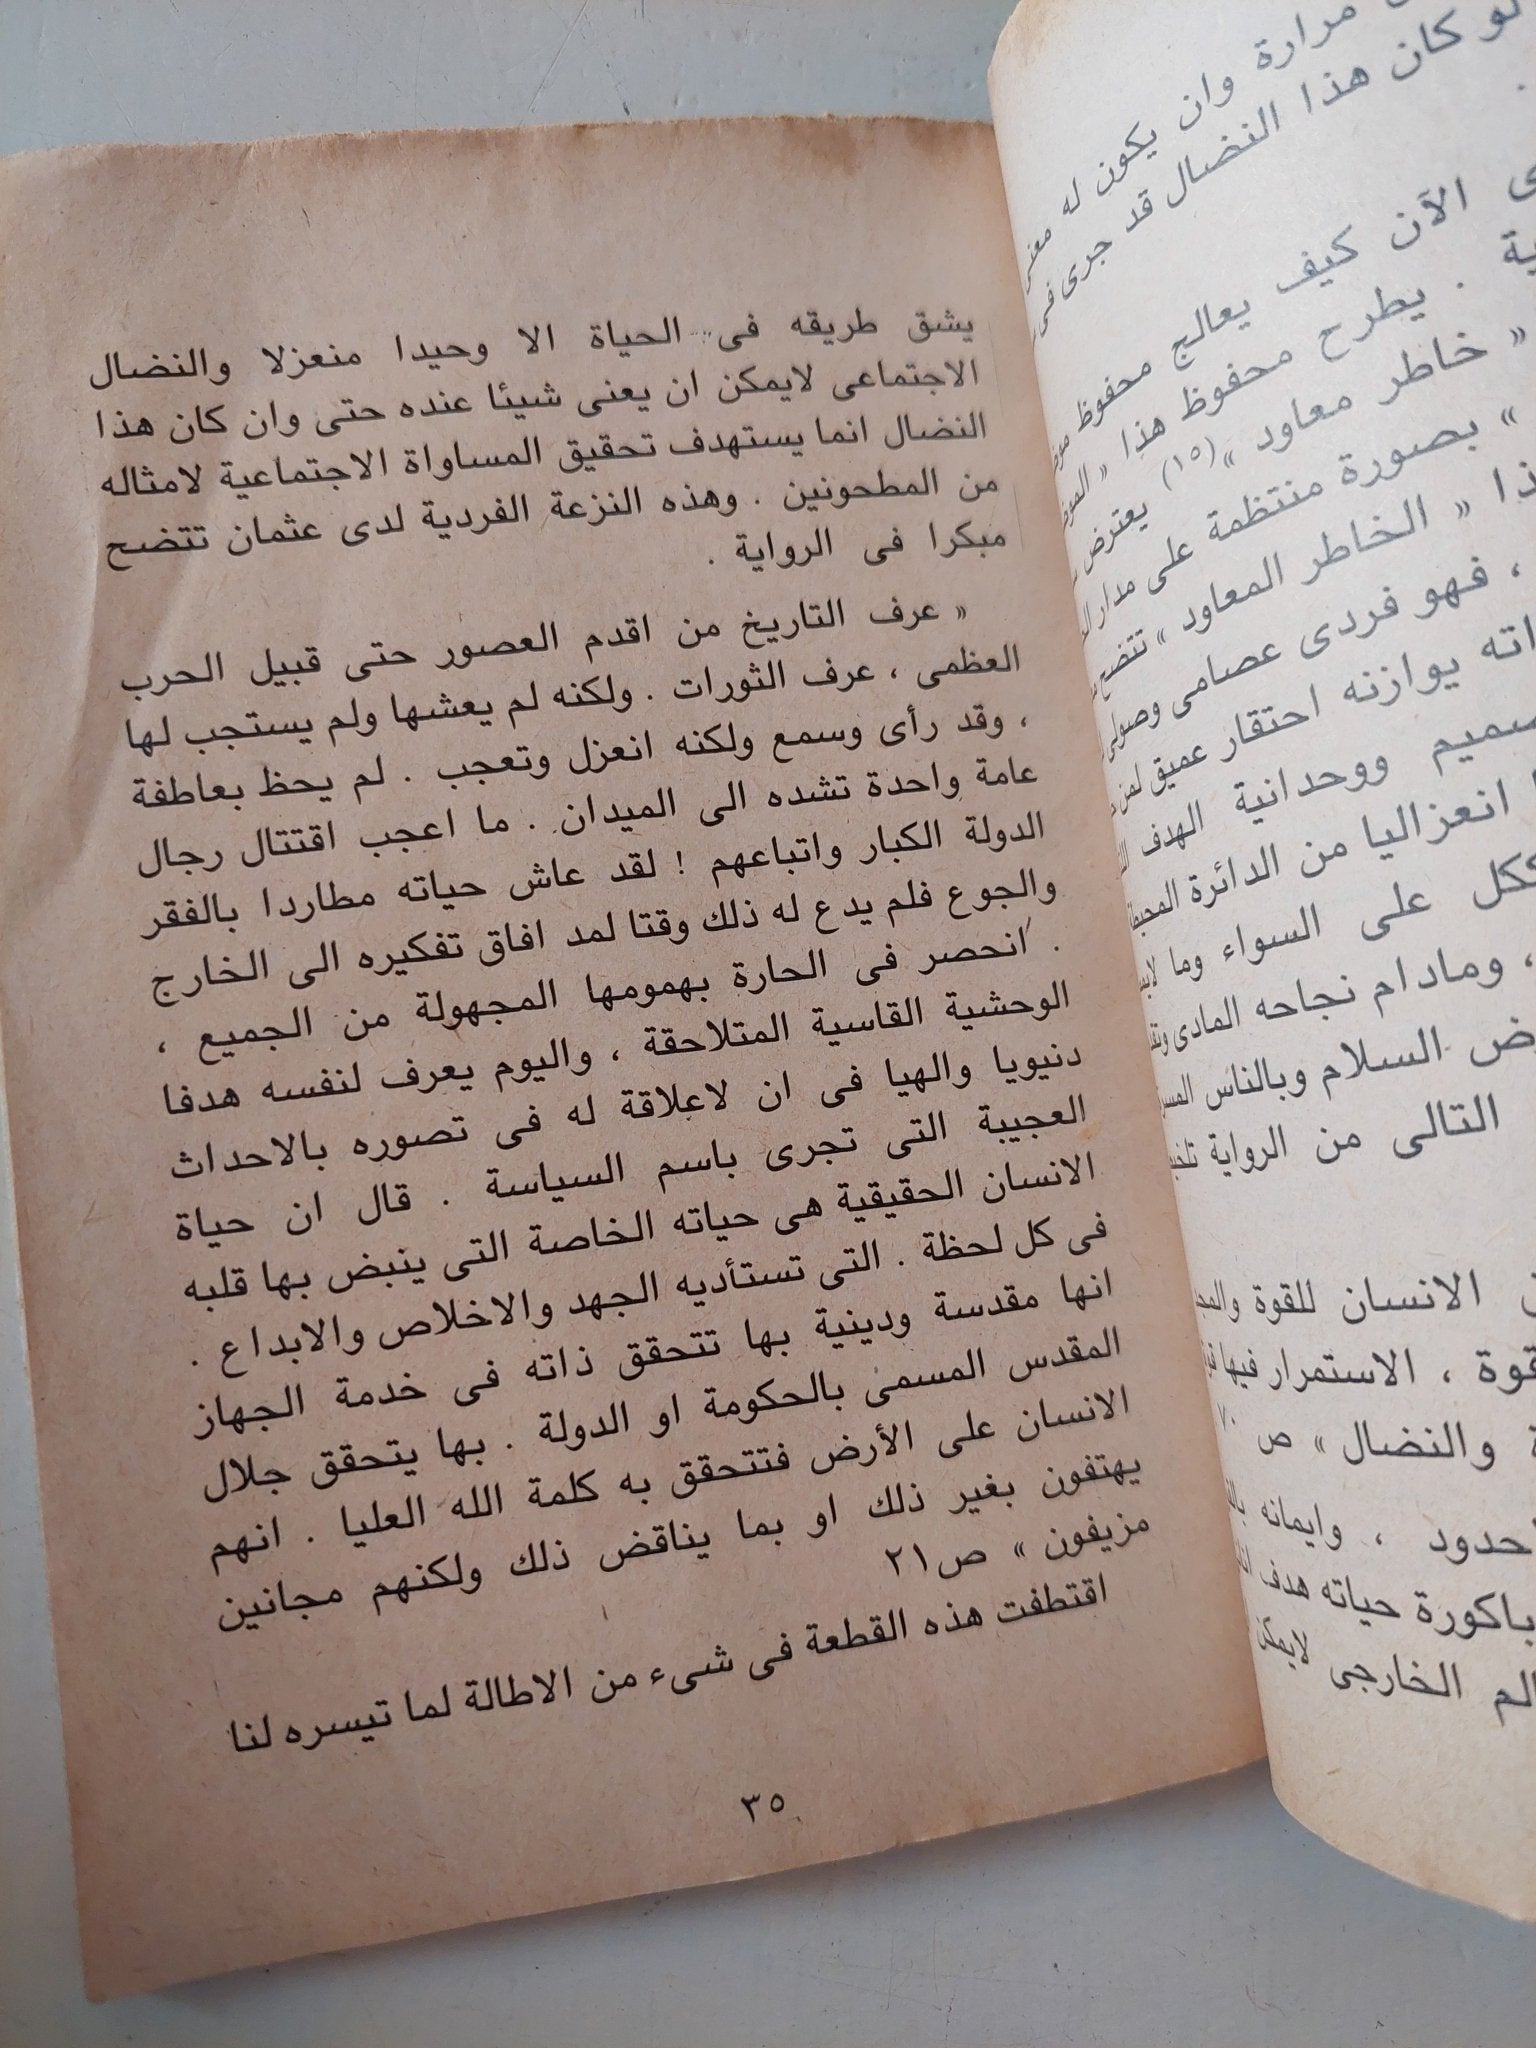 يشق طريقه فى الحياة الا وحيدا منعزلا والنضال
الاجتماعى لايمكن ان يعنى شيئا عنده حتى وان كان هذا
النضال انما يستهدف تحقيق المساواة الاجتماعية لامثاله
من المطحونين . وهذه النزعة الفردية لدى عثمان تتضح
مبكرا فى الرواية .
« عرف التاريخ من اقدم العصور حتى قبيل الحرب
العظمى ، عرف الثورات . ولكنه لم يعشها ولم يستجب لها
، وقد رأى وسمع ولكنه انعزل وتعجب . لم يحظ بعاطفة
عامة واحدة تشده الى الميدان . ما اعجب اقتتال رجال
الدولة الكبار واتباعهم ! لقد عاش حياته مطاردا بالفقر
والجوع فلم يدع له ذلك وقتا لمد افاق تفكيره الى الخارج
. انحصر فى الحارة بهمومها المجهولة من الجميع ،
الوحشية القاسية المتلاحقة ، واليوم يعرف لنفسه هدفا
دنيويا والهيا فى ان لاعلاقة له فى تصوره بالاحداث
العجيبة التى تجرى باسم السياسة . قال ان حياة
الانسان الحقيقية هى حياته الخاصة التى ينبض بها قلبه
فى كل لحظة . التى تستأديه الجهد والاخلاص والابداع .
انها مقدسة ودينية بها تتحقق ذاته فى خدمة الجهاز
المقدس المسمى بالحكومة او الدولة . بها يتحقق جلال
الانسان على الأرض فتتحقق به كلمة الله العليا . انهم
يهتفون بغير ذلك او بما يناقض ذلك ولكنهم مجانين
مزيفون » ص٢١
اقتطفت هذه القطعة فى شىء من الاطالة لما تيسره لنا
٣٥
مرارة وان يكون له معنى
لو كان هذا النضال قد جرى فى
الآن كيف يعالج محفوظ
. يطرح محفوظ هذا «
« خاطر معاود »(١٥) يعترض
» بصورة منتظمة على مدار
« الخاطر المعاود » تتضح
، فهو فردى عصامى وصولى
يوازنه احتقار عميق لمن
ووحدانية الهدف
انعزاليا من الدائرة المحيطة
على السواء وما
، ومادام نجاحه المادى
السلام وبالناس
التالى من الرواية
الانسان للقوة
، الاستمرار فيها
والنضال » ص ٧٠
، وايمانه
باكورة حياته هدف
الخارجى لايمكن